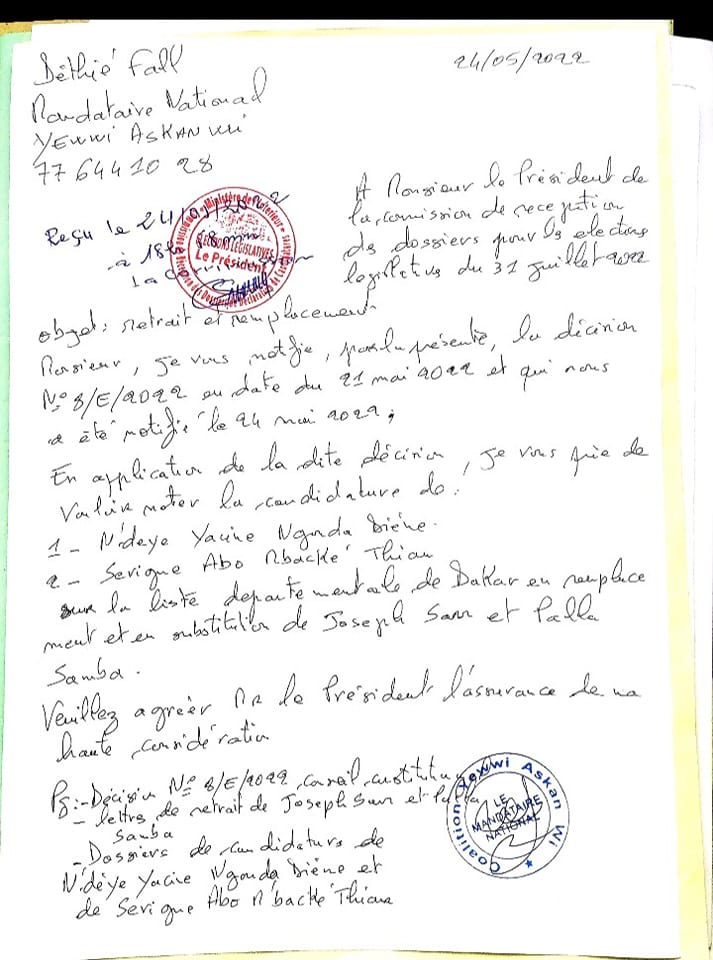 Déthié Fall
24/05/2022
Mandataire National
YEWWI ASKAN WI
77 644 10 28
A Monsieur le Président de
la commission de reception
des dossiers pour les elections
legislatives du 31 juillet 2022
Reçu le 24/05/2022
à 18h
Ministère de l'Intérieur
ELECTIONS LEGISLATIVES
Le Président
objet: retrait et remplacement
Monsieur, je vous notifie, par la présente, la décision
N° 8/E/2022 en date du 21 mai 2022 et qui nous
a été notifié le 24 mai 2022;
En application de la dite décision, je vous prie de
Vouloir noter la candidature de:
1 - N'deye Yacine Ngonda Diène.
2 - Serigne Abo Mbacké Thiam
sur la liste departementale de Dakar en remplace
ment et en substitution de Joseph Sarr et Palla
Samba.
Veuillez agréer Mr le Président l'assurance de ma
haute considération
PS:-Décision N° 8/E/2022 conseil constitu
- lettres de retrait de Joseph Sarr et Palla
Samba
- Dossiers de candidatures de
N'dèye Yacine Ngonda Diène et
de Serigne Abo M'backé Thiam
Coalition Yewwi Askan Wi
LE
MANDATAIRE
NATIONAL